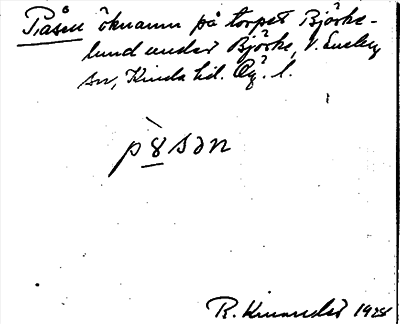 Påsen öknamn på torpet Björke-
lund under Björke, V. Eneby
sn, Kinda hd. Ög. l.
p8̀sən
R. Kinander 1928